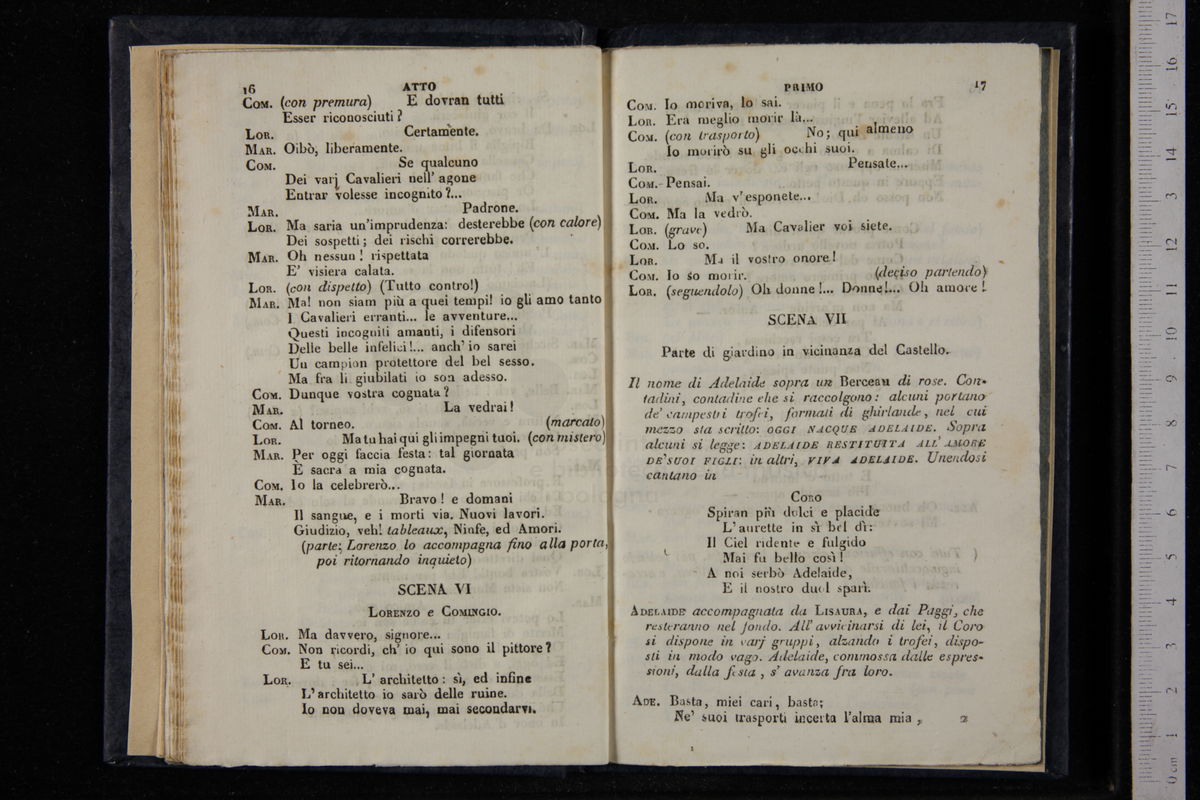 16 ATTO
COM. (con premura) E dovran tutti
Esser riconosciuti?
LOR. Certamente.
MAR. Oibò, liberamente.
COM. Se qualcuno
Dei varj Cavalieri nell' agone
Entrar volesse incognito?...
MAR. Padrone.
LOR. Ma saria un'imprudenza: desterebbe (con calore)
Dei sospetti; dei rischi correrebbe.
MAR. Oh nessun! rispettata
E' visiera calata.
LOR. (con dispetto) (Tutto contro!)
MAR. Ma! non siam più a quei tempi! io gli amo tanto
I Cavalieri erranti... le avventure...
Questi incogniti amanti, i difensori
Delle belle infelici!... anch' io sarei
Un campion protettore del bel sesso.
Ma fra li giubilati io son adesso.
COM. Dunque vostra cognata?
MAR. La vedrai!
COM. Al torneo. (marcato)
LOR. Ma tu hai qui gli impegni tuoi. (con mistero)
MAR. Per oggi faccia festa: tal giornata
È sacra a mia cognata.
COM. Io la celebrerò...
MAR. Bravo! e domani
Il sangue, e i morti via. Nuovi lavori.
Giudizio, veh! tableaux, Ninfe, ed Amori.
(parte; Lorenzo lo accompagna fino alla porta,
poi ritornando inquieto)
SCENA VI
LORENZO e COMINGIO.
LOR. Ma davvero, signore...
COM. Non ricordi, ch' io qui sono il pittore?
E tu sei...
LOR. L' architetto: sì, ed infine
L' architetto io sarò delle ruine.
Io non doveva mai, mai secondarvi.
PRIMO 17
COM. Io moriva, lo sai.
LOR. Era meglio morir là...
COM. (con trasporto) No; qui almeno
Io morirò su gli occhi suoi.
LOR. Pensate...
COM. Pensai.
LOR. Ma v' esponete...
COM. Ma la vedrò.
LOR. (grave) Ma Cavalier voi siete.
COM. Lo so.
LOR. Ma il vostro onore!
COM. Io so morir. (deciso partendo)
LOR. (seguendolo) Oh donne!... Donne!... Oh amore!
SCENA VII
Parte di giardino in vicinanza del Castello.
Il nome di Adelaide sopra un Berceau di rose. Con-
tadini, contadine che si raccolgono: alcuni portano
de' campestri trofei, formati di ghirlande, nel cui
mezzo sta scritto: OGGI NACQUE ADELAIDE. Sopra
alcuni si legge: ADELAIDE RESTITUITA ALL' AMORE
DE' SUOI FIGLI: in altri, VIVA ADELAIDE. Unendosi
cantano in
CORO
Spiran più dolci e placide
L' aurette in sì bel dì:
Il Ciel ridente e fulgido
Mai fu bello così!
A noi serbò Adelaide,
E il nostro duol sparì.
ADELAIDE accompagnata da LISAURA, e dai Paggi, che
resteranno nel fondo. All' avvicinarsi di lei, il Coro
si dispone in varj gruppi, alzando i trofei, dispo-
sti in modo vago. Adelaide, commossa dalle espres-
sioni, dalla festa, s' avanza fra loro.
ADE. Basta, miei cari, basta;
Ne' suoi trasporti incerta l'alma mia,
2
0 cm 1 2 3 4 5 6 7 8 9 10 11 12 13 14 15 16 17